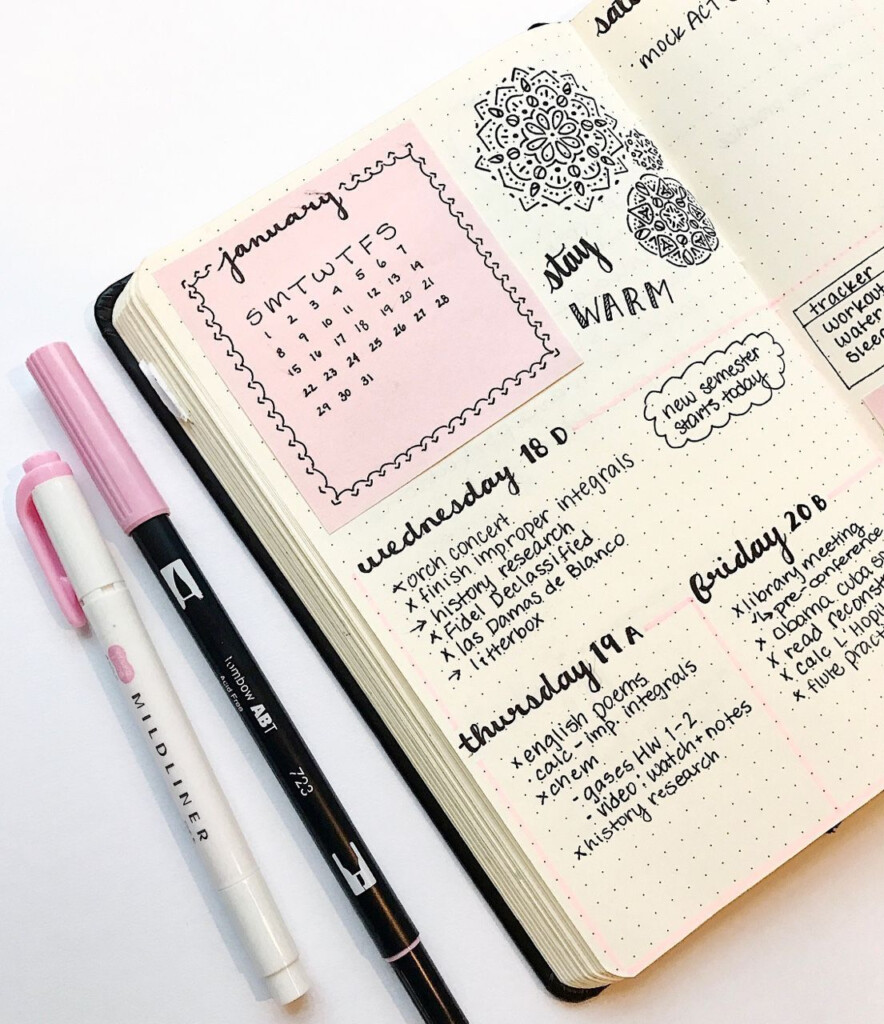 january
S M T W T F S
1 2 3 4 5 6 7
8 9 10 11 12 13 14
15 16 17 18 19 20 21
22 23 24 25 26 27 28
29 30 31
stay
WARM
new semester
starts today
wednesday 18 D
x orch concert
x finish improper integrals
→ history research
x Fidel Declassified
x las Damas de Blanco
→ litterbox
thursday 19 A
x english poems
· calc - imp. integrals
x chem
- gases HW 1-2
- video: watch + notes
x history research
friday 20 B
x library meeting
↳ pre-conference
x obama, cuba
x read
x calc L'Hopi
x flute pract
mock ACT
tracker
workout
water
sleep
MILDLINER
Tombow ABT
Acid Free
723